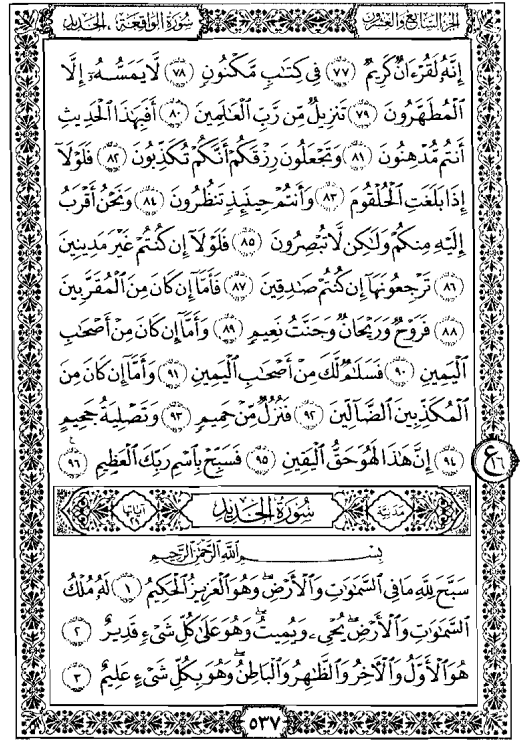 الجزء السابع والعشرون
سورة الواقعة ، الحديد
إِنَّهُۥ لَقُرْءَانٌ كَرِيمٌ ﴿٧٧﴾ فِى كِتَٰبٍ مَّكْنُونٍ ﴿٧٨﴾ لَّا يَمَسُّهُۥٓ إِلَّا
ٱلْمُطَهَّرُونَ ﴿٧٩﴾ تَنزِيلٌ مِّن رَّبِّ ٱلْعَٰلَمِينَ ﴿٨٠﴾ أَفَبِهَٰذَا ٱلْحَدِيثِ
أَنتُم مُّدْهِنُونَ ﴿٨١﴾ وَتَجْعَلُونَ رِزْقَكُمْ أَنَّكُمْ تُكَذِّبُونَ ﴿٨٢﴾ فَلَوْلَآ
إِذَا بَلَغَتِ ٱلْحُلْقُومَ ﴿٨٣﴾ وَأَنتُمْ حِينَئِذٍ تَنظُرُونَ ﴿٨٤﴾ وَنَحْنُ أَقْرَبُ
إِلَيْهِ مِنكُمْ وَلَٰكِن لَّا تُبْصِرُونَ ﴿٨٥﴾ فَلَوْلَآ إِن كُنتُمْ غَيْرَ مَدِينِينَ
﴿٨٦﴾ تَرْجِعُونَهَآ إِن كُنتُمْ صَٰدِقِينَ ﴿٨٧﴾ فَأَمَّآ إِن كَانَ مِنَ ٱلْمُقَرَّبِينَ
﴿٨٨﴾ فَرَوْحٌ وَرَيْحَانٌ وَجَنَّتُ نَعِيمٍ ﴿٨٩﴾ وَأَمَّآ إِن كَانَ مِنْ أَصْحَٰبِ
ٱلْيَمِينِ ﴿٩٠﴾ فَسَلَٰمٌ لَّكَ مِنْ أَصْحَٰبِ ٱلْيَمِينِ ﴿٩١﴾ وَأَمَّآ إِن كَانَ مِنَ
ٱلْمُكَذِّبِينَ ٱلضَّآلِّينَ ﴿٩٢﴾ فَنُزُلٌ مِّنْ حَمِيمٍ ﴿٩٣﴾ وَتَصْلِيَةُ جَحِيمٍ
﴿٩٤﴾ إِنَّ هَٰذَا لَهُوَ حَقُّ ٱلْيَقِينِ ﴿٩٥﴾ فَسَبِّحْ بِٱسْمِ رَبِّكَ ٱلْعَظِيمِ ﴿٩٦﴾
ع ١٦
مدنية
سورة الحديد
آياتها ٢٩
بِسْمِ ٱللَّهِ ٱلرَّحْمَٰنِ ٱلرَّحِيمِ
سَبَّحَ لِلَّهِ مَا فِى ٱلسَّمَٰوَٰتِ وَٱلْأَرْضِ ۖ وَهُوَ ٱلْعَزِيزُ ٱلْحَكِيمُ ﴿١﴾ لَهُۥ مُلْكُ
ٱلسَّمَٰوَٰتِ وَٱلْأَرْضِ ۖ يُحْىِۦ وَيُمِيتُ ۖ وَهُوَ عَلَىٰ كُلِّ شَىْءٍ قَدِيرٌ ﴿٢﴾
هُوَ ٱلْأَوَّلُ وَٱلْءَاخِرُ وَٱلظَّٰهِرُ وَٱلْبَاطِنُ ۖ وَهُوَ بِكُلِّ شَىْءٍ عَلِيمٌ ﴿٣﴾
٥٣٧